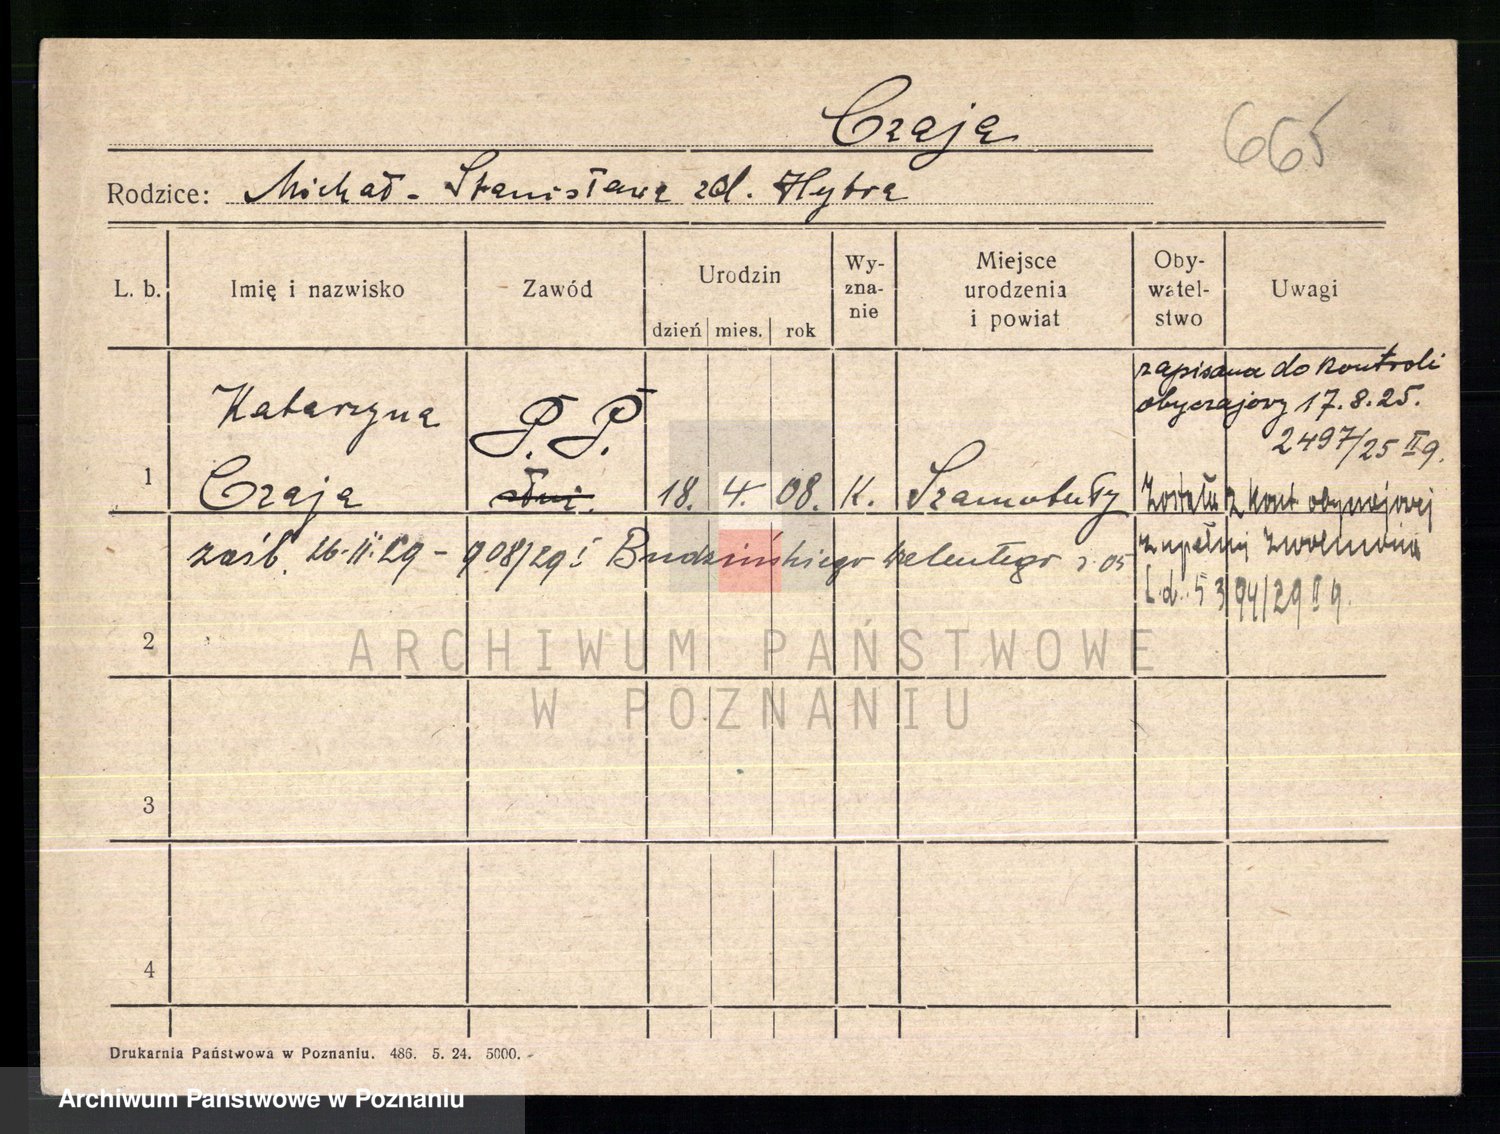 Czaja
665
Rodzice: Michał - Stanisława zd. Hybra
L. b. Imię i nazwisko Zawód Urodzin dzień mies. rok Wy-zna-nie Miejsce urodzenia i powiat Oby-watel-stwo Uwagi
zapisana do kontroli
obyczajowy 17.8.25.
2497/25 II 9.
Katarzyna P. P.
1 Czaja służ. 18. 4. 08. K. Szamotuły
Została z kont obyczajowej
zupełnej zwolniona
L.d. 5394/29 II 9.
zaśl. 26.II.29 - 908/29 I Budzińskiego Walentego r. 05
2
3
4
ARCHIWUM PAŃSTWOWE
W POZNANIU
Drukarnia Państwowa w Poznaniu. 486. 5. 24. 5000.
Archiwum Państwowe w Poznaniu